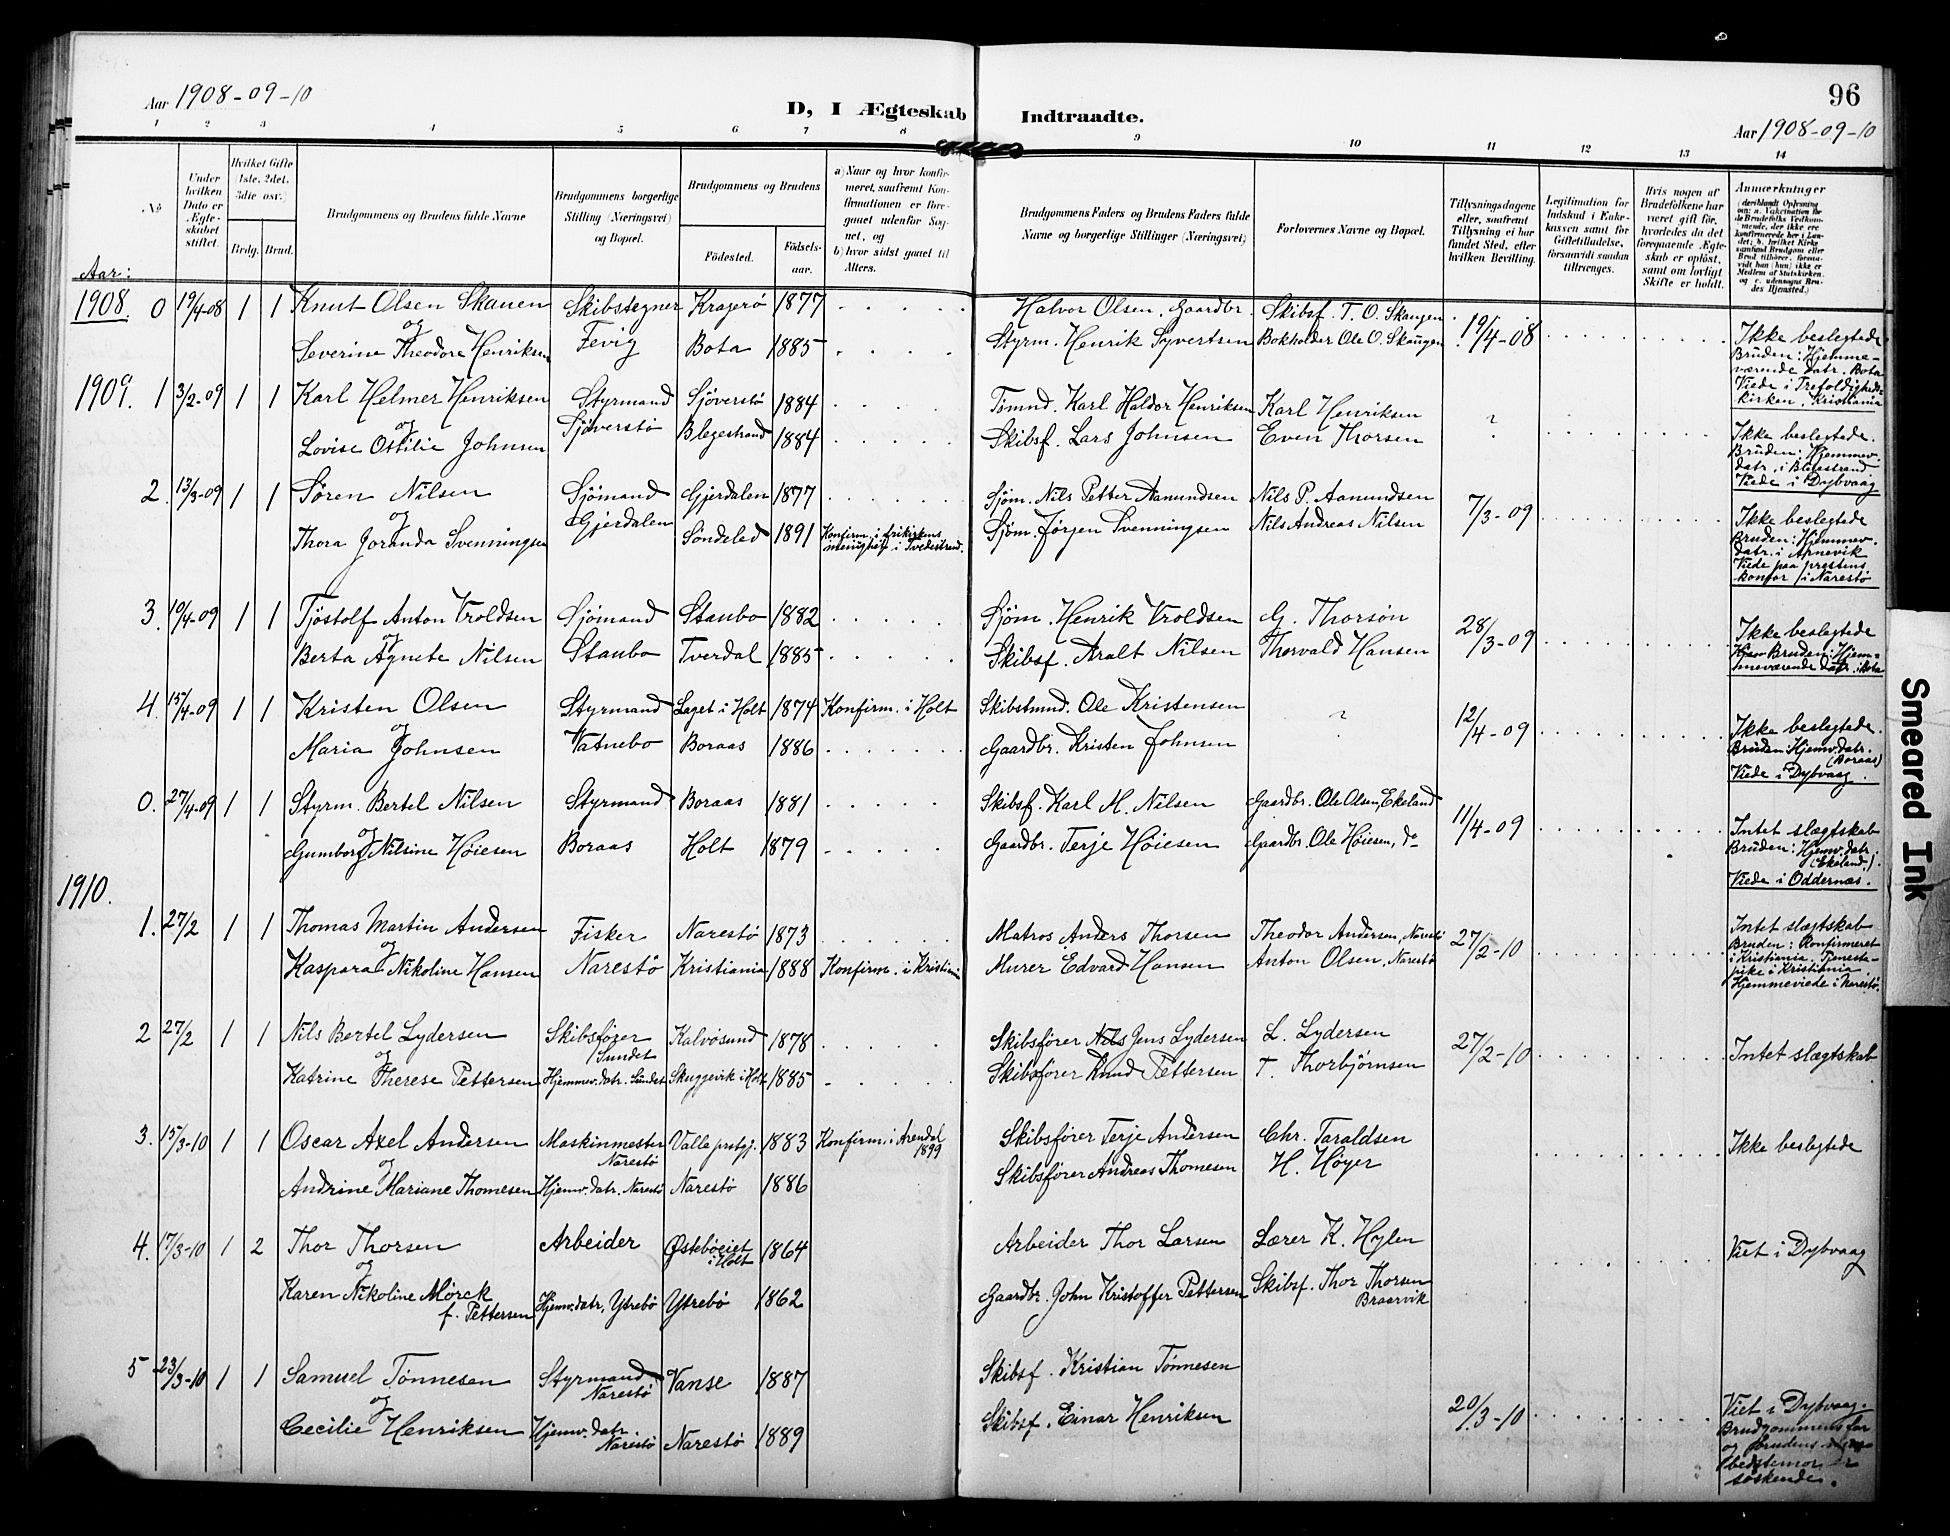 Aar 1908-09-10
D, I Ægteskab Indtraadte.
96
Aar 1908-09-10
1 2 3 4 5 6 7 8 9 10 11 12 13 14
No
Under hvilken Dato er Ægteskabet stiftet.
Hvilket Gifte (1ste, 2det, 3die osv.)
Brdg. Brud.
Brudgommens og Brudens fulde Navne
Brudgommens borgerlige Stilling (Næringsvei) og Bopæl.
Brudgommens og Brudens
Fødested. Fødselsaar.
a) Naar og hvor konfirmeret, saafremt Konfirmationen er foregaaet udenfor Sognet, og
b) hvor sidst gaaet til Alters.
Brudgommens Faders og Brudens Faders fulde Navne og borgerlige Stillinger (Næringsvei)
Forlovernes Navne og Bopæl.
Tillysningsdagene eller, saafremt Tillysning ei har fundet Sted, efter hvilken Bevilling.
Legitimation for Indskud i Enkekassen samt for Giftetilladelse, forsaavidt saadan tiltrænges.
Hvis nogen af Brudefolkene har været gift før, hvorledes da det foregaaende Ægteskab er opløst, samt om lovligt Skifte er holdt.
Anmærkninger
Aar:
1908. 0 19/4-08 1 1 Knut Olsen Skauen Skibstegner Kragerø 1877 Halvor Olsen, Gaardbr. Skibsf. T. O. Skaugen 19/4-08 Ikke beslegtede
og Fevig
Severine Theodore Henriksen Bota 1885 Styrm. Henrik Syvertsen Bokholder Ole O. Skaugen
Bruden: Hjemmeværende datr. Bota
Viede i Trefoldighedskirken, Kristiania
1909. 1 3/2-09 1 1 Karl Helmer Henriksen Styrmand Sjøverstø 1884 Tømnd. Karl Haldor Henriksen Karl Henriksen ?
og Sjøverstø
Lovise Ottilie Johnsen Blegestrand 1884 Skibsf. Lars Johnsen Even Thorsen
Ikke beslegtede.
Bruden: Hjemmev. datr. i Blegestrand
Viede i Dybvaag
2. 13/3-09 1 1 Søren Nilsen Sjømand Gjerdalen 1877 Sjøm. Nils Petter Aanundsen Nils P. Aanundsen 7/3-09
og Gjerdalen
Thora Joranda Svenningsen Søndeled 1891 Konfirm. i frikirkens menighet i Tvedestrand. Sjøm. Jørgen Svenningsen Nils Andreas Nilsen
Ikke beslegtede
Bruden: Hjemmev. datr. i Apnevik
Viede paa prestens kontor i Narestø
3. 19/4-09 1 1 Tjøstolf Anton Vroldsen Sjømand Staubo 1882 Sjøm. Henrik Vroldsen G. Thorsøn 28/3-09
og
Berta Agnete Nilsen Staubo Tverdal 1885 Skibsf. Aralt Nilsen Thorvald Hansen
Ikke beslegtede
Bruden: Hjemmeværende datr. i Bota
4. 15/4-09 1 1 Kristen Olsen Styrmand Laget i Holt 1874 Konfirm. i Holt Skibstmnd. Ole Kristensen ? 12/4-09
og
Maria Johnsen Vatnebo Boraas 1886 Gaardbr. Kristen Johnsen
Ikke beslegtede.
Bruden: Hjemv. datr. (Boraas)
Viede i Dybvaag.
0. 27/4-09 1 1 Styrm. Bertel Nilsen Styrmand Boraas 1881 Skibsf. Karl M. Nilsen Gaardbr. Ole Olsen, Ekeland 11/4-09
og
Gumborg Nilsine Høiesen Boraas Holt 1879 Gaardbr. Terje Høiesen Gaardbr. Ole Høiesen, do
Intet slægtskab
Bruden: Hjemv. datr. (Ekeland).
Viede i Oddernæs.
1910.
1. 27/2 1 1 Thomas Martin Andersen Fisker Narestø 1873 Matros Anders Thorsen Theodor Andersen, Narestø 27/2-10
og
Kaspara Nikoline Hansen Narestø Kristiania 1888 Konfirm. i Kristiania Murer Edvard Hansen Anton Olsen, Narestø
Intet slægtskab
Bruden: Konfirmeret i Kristiania. Tjenestepike i Kristiania
Hjemmeviede i Narestø.
2 27/2 1 1 Nils Bertel Lydersen Skibsfører Sundet Kalvøsund 1878 Skibsfører Nils Jens Lydersen L. Lydersen 27/2-10 Intet slægtskab
og
Katrine Therese Pettersen Hjemmev. datr. Sundet Skuggevik i Holt 1885 Skibsfører Knud Pettersen T. Thorbjørnsen
3. 15/3-10 1 1 Oscar Axel Andersen Maskinmester Narestø Valle prstgj. 1883 Konfirm. i Arendal 1899 Skibsfører Terje Andersen Chr. Taraldsen Ikke beslegtede
og
Andrine Mariane Thomesen Hjemv. datr. Narestø Narestø 1886 Skibsfører Andreas Thomesen H. Høyer
4. 17/3-10 1 2 Thor Thorsen Arbeider Østebøeiet i Holt 1864 Arbeider Thor Larsen Lærer K. Hylen Viet i Dybvaag
og
Karen Nikoline Mørck f. Pettersen Hjemv. datr, Ytrebø Ytrebø 1862 Gaardbr. John Kristoffer Pettersen Skibsf. Thor Thorsen Braarvik
5 23/3-10 1 1 Samuel Tønnesen Styrmand Narestø Vanse 1887 Skibsf. Kristian Tønnesen
og
Cecilie Henriksen Hjemv. datr. Narestø Narestø 1889 Skibsf. Einar Henriksen 20/3-10
Viet i Dybvaag.
Brudgommens far og brudens bedstemor er søskende.
Smeared Ink